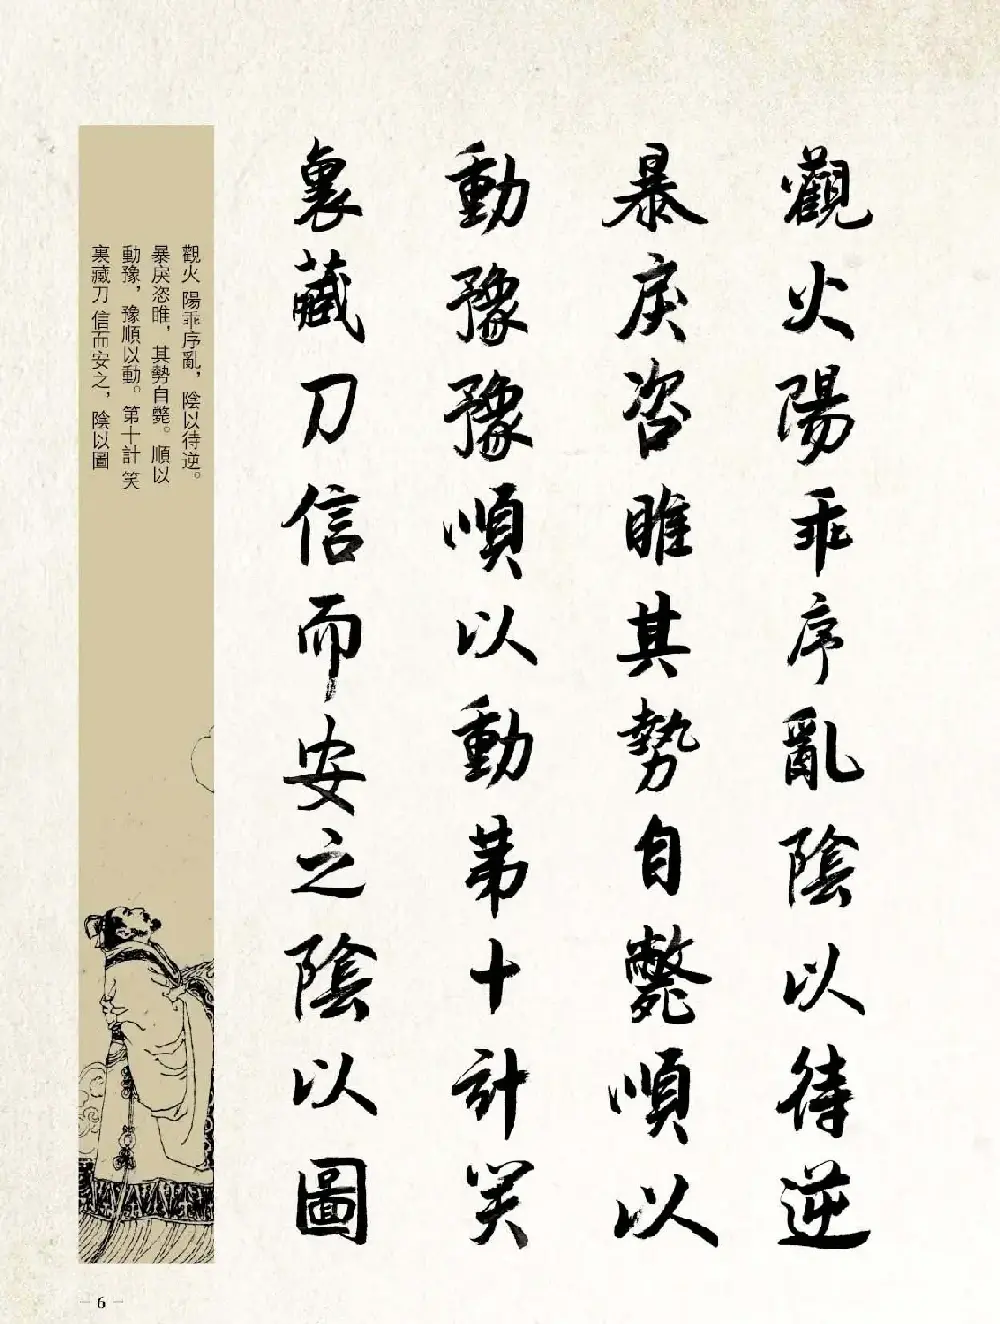 觀火陽乖序亂陰以待逆
暴戾恣睢其勢自斃順以
動豫豫順以動第十計笑
裏藏刀信而安之陰以圖
觀火 陽乖序亂，陰以待逆。
暴戾恣睢，其勢自斃。順以
動豫，豫順以動。第十計 笑
裏藏刀 信而安之，陰以圖
— 6 —